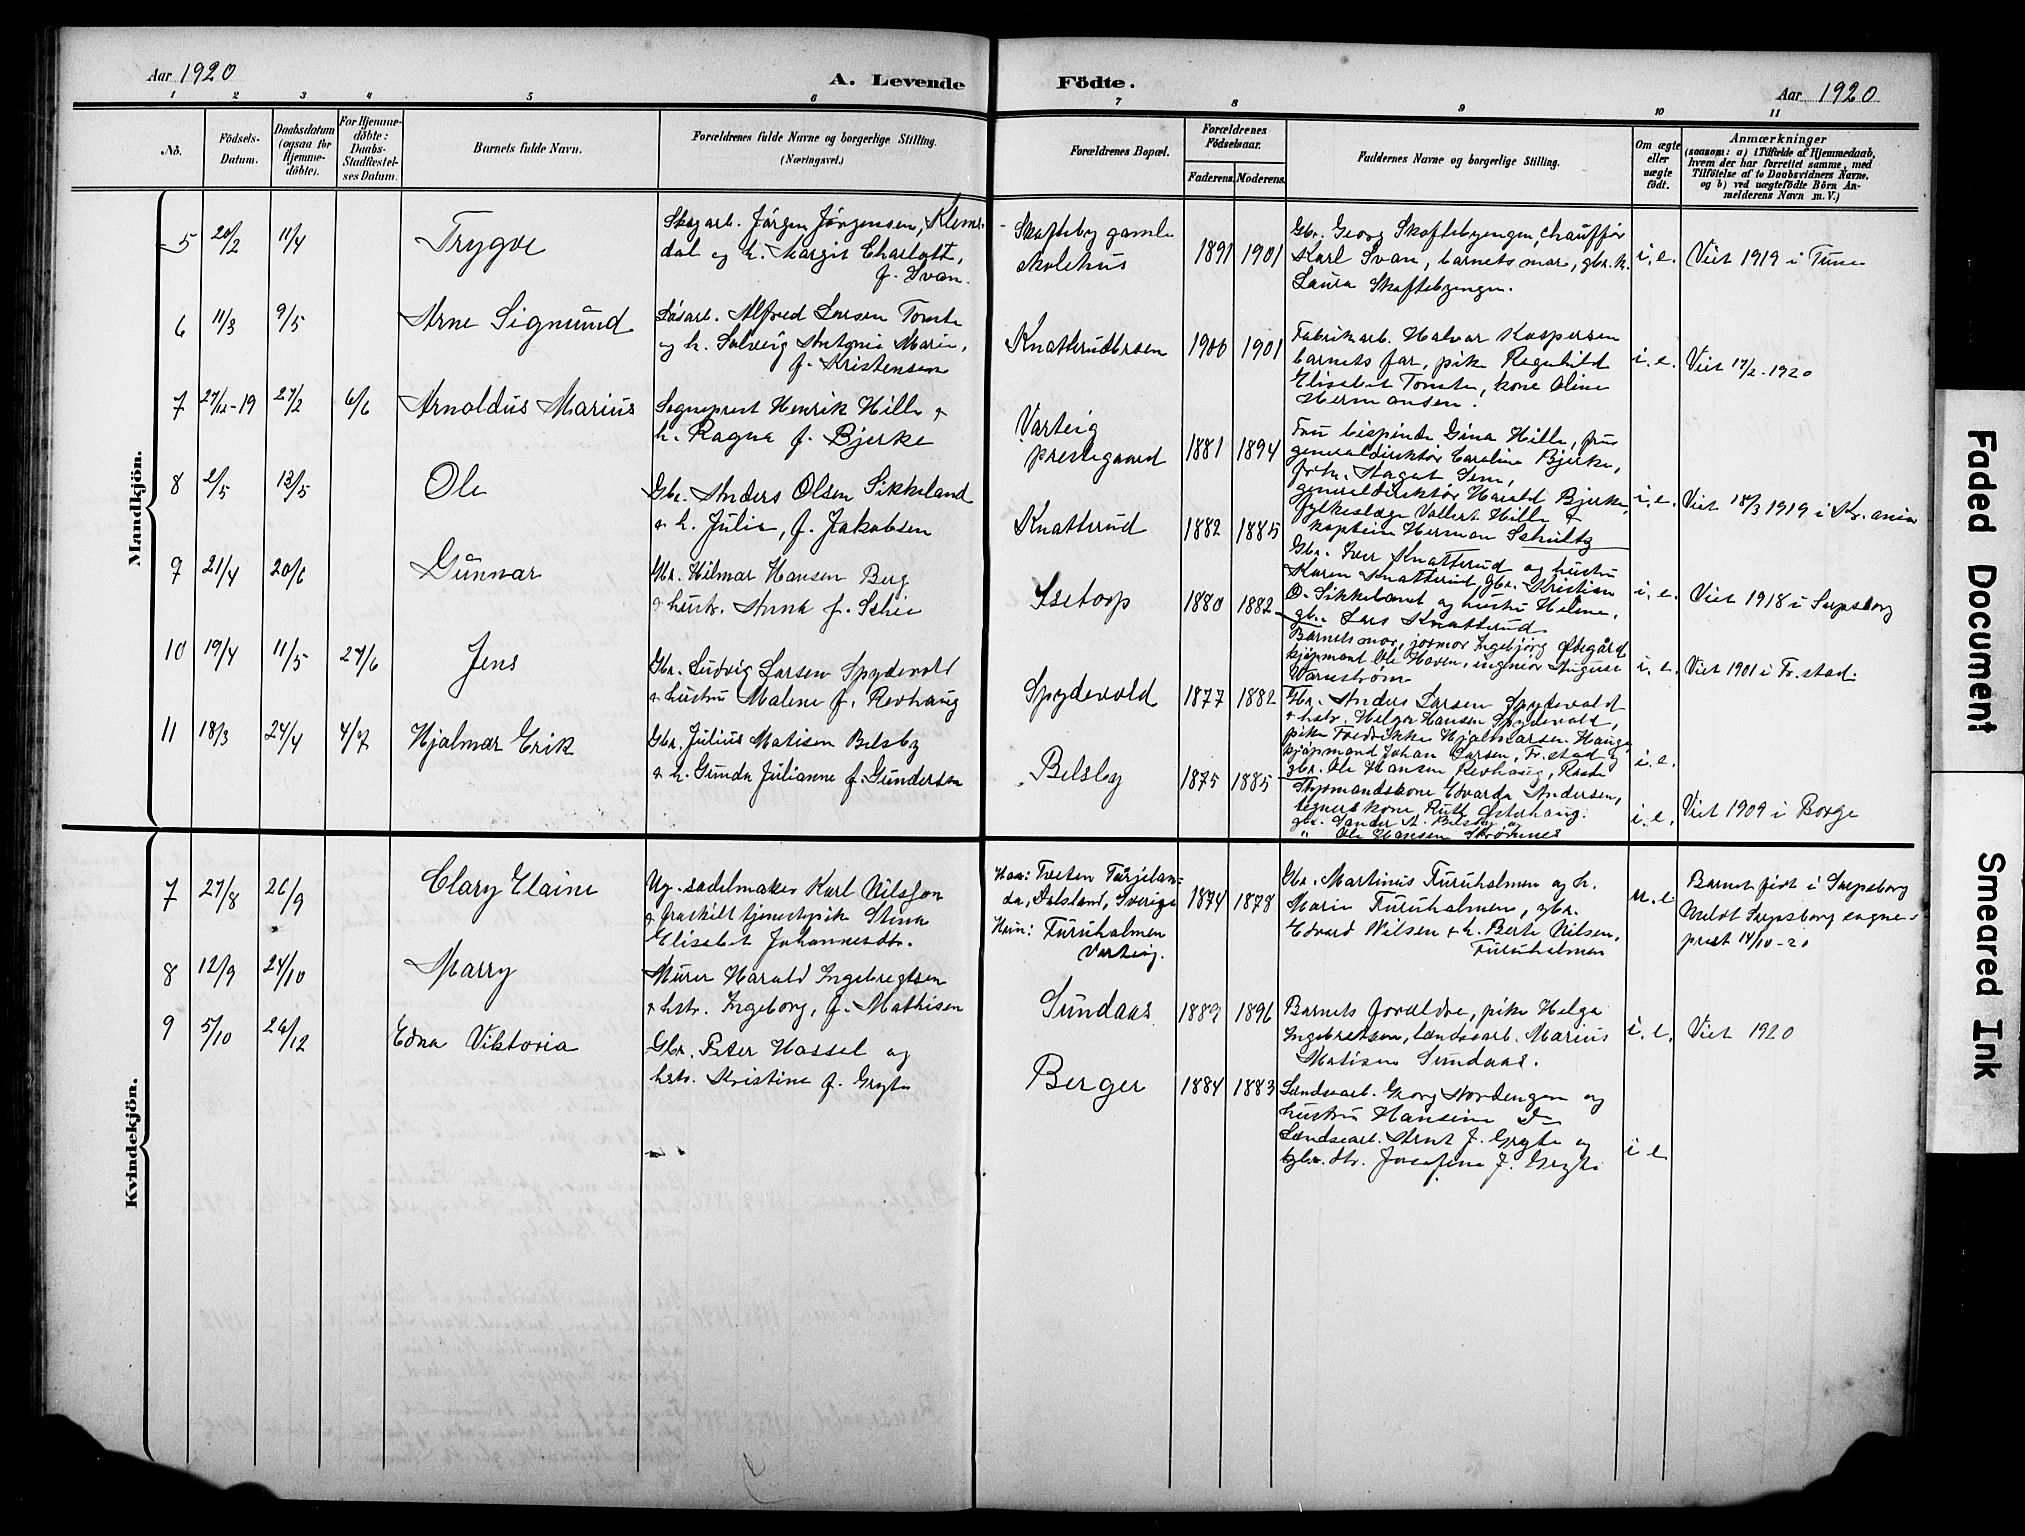 Aar 1920
A. Levende Födte.
Aar 1920
1 2 3 4 5 6 7 8 9 10 11
No.
Födsels-
Datum.
Daabsdatum
(ogsaa for
Hjemme-
döbte).
For Hjemme-
döbte:
Daabs-
Stadfæstel-
ses Datum.
Barnets fulde Navn.
Forældrenes fulde Navne og borgerlige Stilling.
(Næringsvei.)
Forældrenes Bopæl.
Forældrenes
Födselsaar.
Faderens. Moderens.
Faddernes Navne og borgerlige Stilling.
Om ægte
eller
uægte
födt.
Anmærkninger
(saasom: a) i Tilfælde af Hjemmedaab,
hvem der har forrettet samme, med
Tilföielse af to Daabsvidners Navne,
og b) ved uægtefödte Börn An-
melderens Navn m. V.)
Mandkjön.
5 20/2 11/4 Trygve
Skogarb. Jörgen Jörgensen, Klems-
dal og h. Margit Charlott,
f. Svan.
Skofteby gamle
skolehus
1891 1901
Gbr. Georg Skoftebyengen, chauffør
Karl Svan, barnets mor, gbr. k.
Laura Skoftebyengen.
i. e. Viet 1919 i Tune
6 11/3 9/5 Arne Sigmund
Løsarb. Alfred Larsen Tomte
og h. Solveig Antonie Marie,
f. Kristensen
Knatterudbraaen
1900 1901
Fabrikarb. Halvar Kaspersen
barnets far, pike Ragnhild
Elisabet Tomte, kone Oline
Hermansen.
i. e. Viet 17/2-1920
7 27/12-19 27/2 6/6 Arnoldus Marius
Sogneprest Henrik Hille &
h. Ragna f. Bjerke
Varteig
prestegaard
1881 1894
Fru bispinde Gina Hille, frue
generaldirektør Caroline Bjerke,
frk. Magat Sem,
generaldirektør Harald Bjerke,
fylkeslæge Vollert Hille &
kaptein Herman Schultz
i. e. Viet 18/3 1919 i Kr.ania
8 2/5 13/5 Ole
Gbr. Anders Olsen Sikkeland
& h. Julie, f. Jakobsen
Knatterud
1882 1885
Gbr. Iver Knatterud og hustru
Karen Knatterud, gbr. Kristian
O. Sikkeland og hustru Helene,
gbr. Lars Knatterud.
i. e. Viet 1918 i Sarpsborg
9 21/4 20/6 Gunnar
Gbr. Hilmar Hansen Berg
& hustr. Anna f. Schie
Isetorp
1880 1882
Barnets mor, jormor Ingebjørg Ødegård
kjøpmant Ole Haven, ingeniør August
Warnstrøm
i. e. Viet 1901 i Fr.stad.
10 19/4 11/5 27/6 Jens
Gbr. Ludvig Larsen Spydevold
& hustru Malene f. Revhaug
Spydevold
1877 1882
Gbr. Anders Larsen Spydevold
& hstr. Helga Hansen Spydevold,
pike Fredrikke Hjalmarsen Hauge
kjøpmand Johan Larsen, Fr.stad og
gbr. Ole Hansen Revhaug, Raade
i. e.
11 18/3 24/4 4/7 Hjalmar Erik
Gbr. Julius Matisen Belsby
& h. Gunda Julianne f. Gundersen
Belsby
1875 1885
Styrmandskone Edvarda Andersen,
tegnerskone Ruth Østerhaug.
gbr. Sander A. Belsby og
" Ole Hansen Strømnes
i. e. Viet 1909 i Borge
Kvindekjön.
7 27/8 26/9 Clary Elaine
Ug. sadelmaker Karl Nilsson
& fraskilt tjenestepik Stina
Elisabet Johannesdtr.
Han: Tveten Färjelan-
da, Dalsland, Sverige
Hun: Furuholmen
Varteig.
1874 1878
Gbr. Martinus Furuholmen og h.
Marie Furuholmen, gbr.
Edvard Nilsen & h. Berte Nilsen,
Furuholmen
u. e
Barnet født i Sarpsborg
Meldt Sarpsborg sogne-
prest 14/10-20
8 12/9 24/10 Marry
Murer Harald Ingebregtsen
& hstr. Ingeborg, f. Mathisen
Sundaas
1889 1896
Barnets forældre, pike Helga
Ingebretsen, landsarb. Marius
Matisen Sundaas.
i. e. Viet 1920
9 5/10 26/12 Edna Viktoria
Gbr. Peter Hassel og
hstr. Kristine f. Gryte
Berger
1884 1883
Landsarb. Georg Nordengen og
hustru Hansine Do
Landsarb. Arnt J. Gryte og
gbr.dtr. Josefine J. Gryte
i e
Faded Document
Smeared Ink